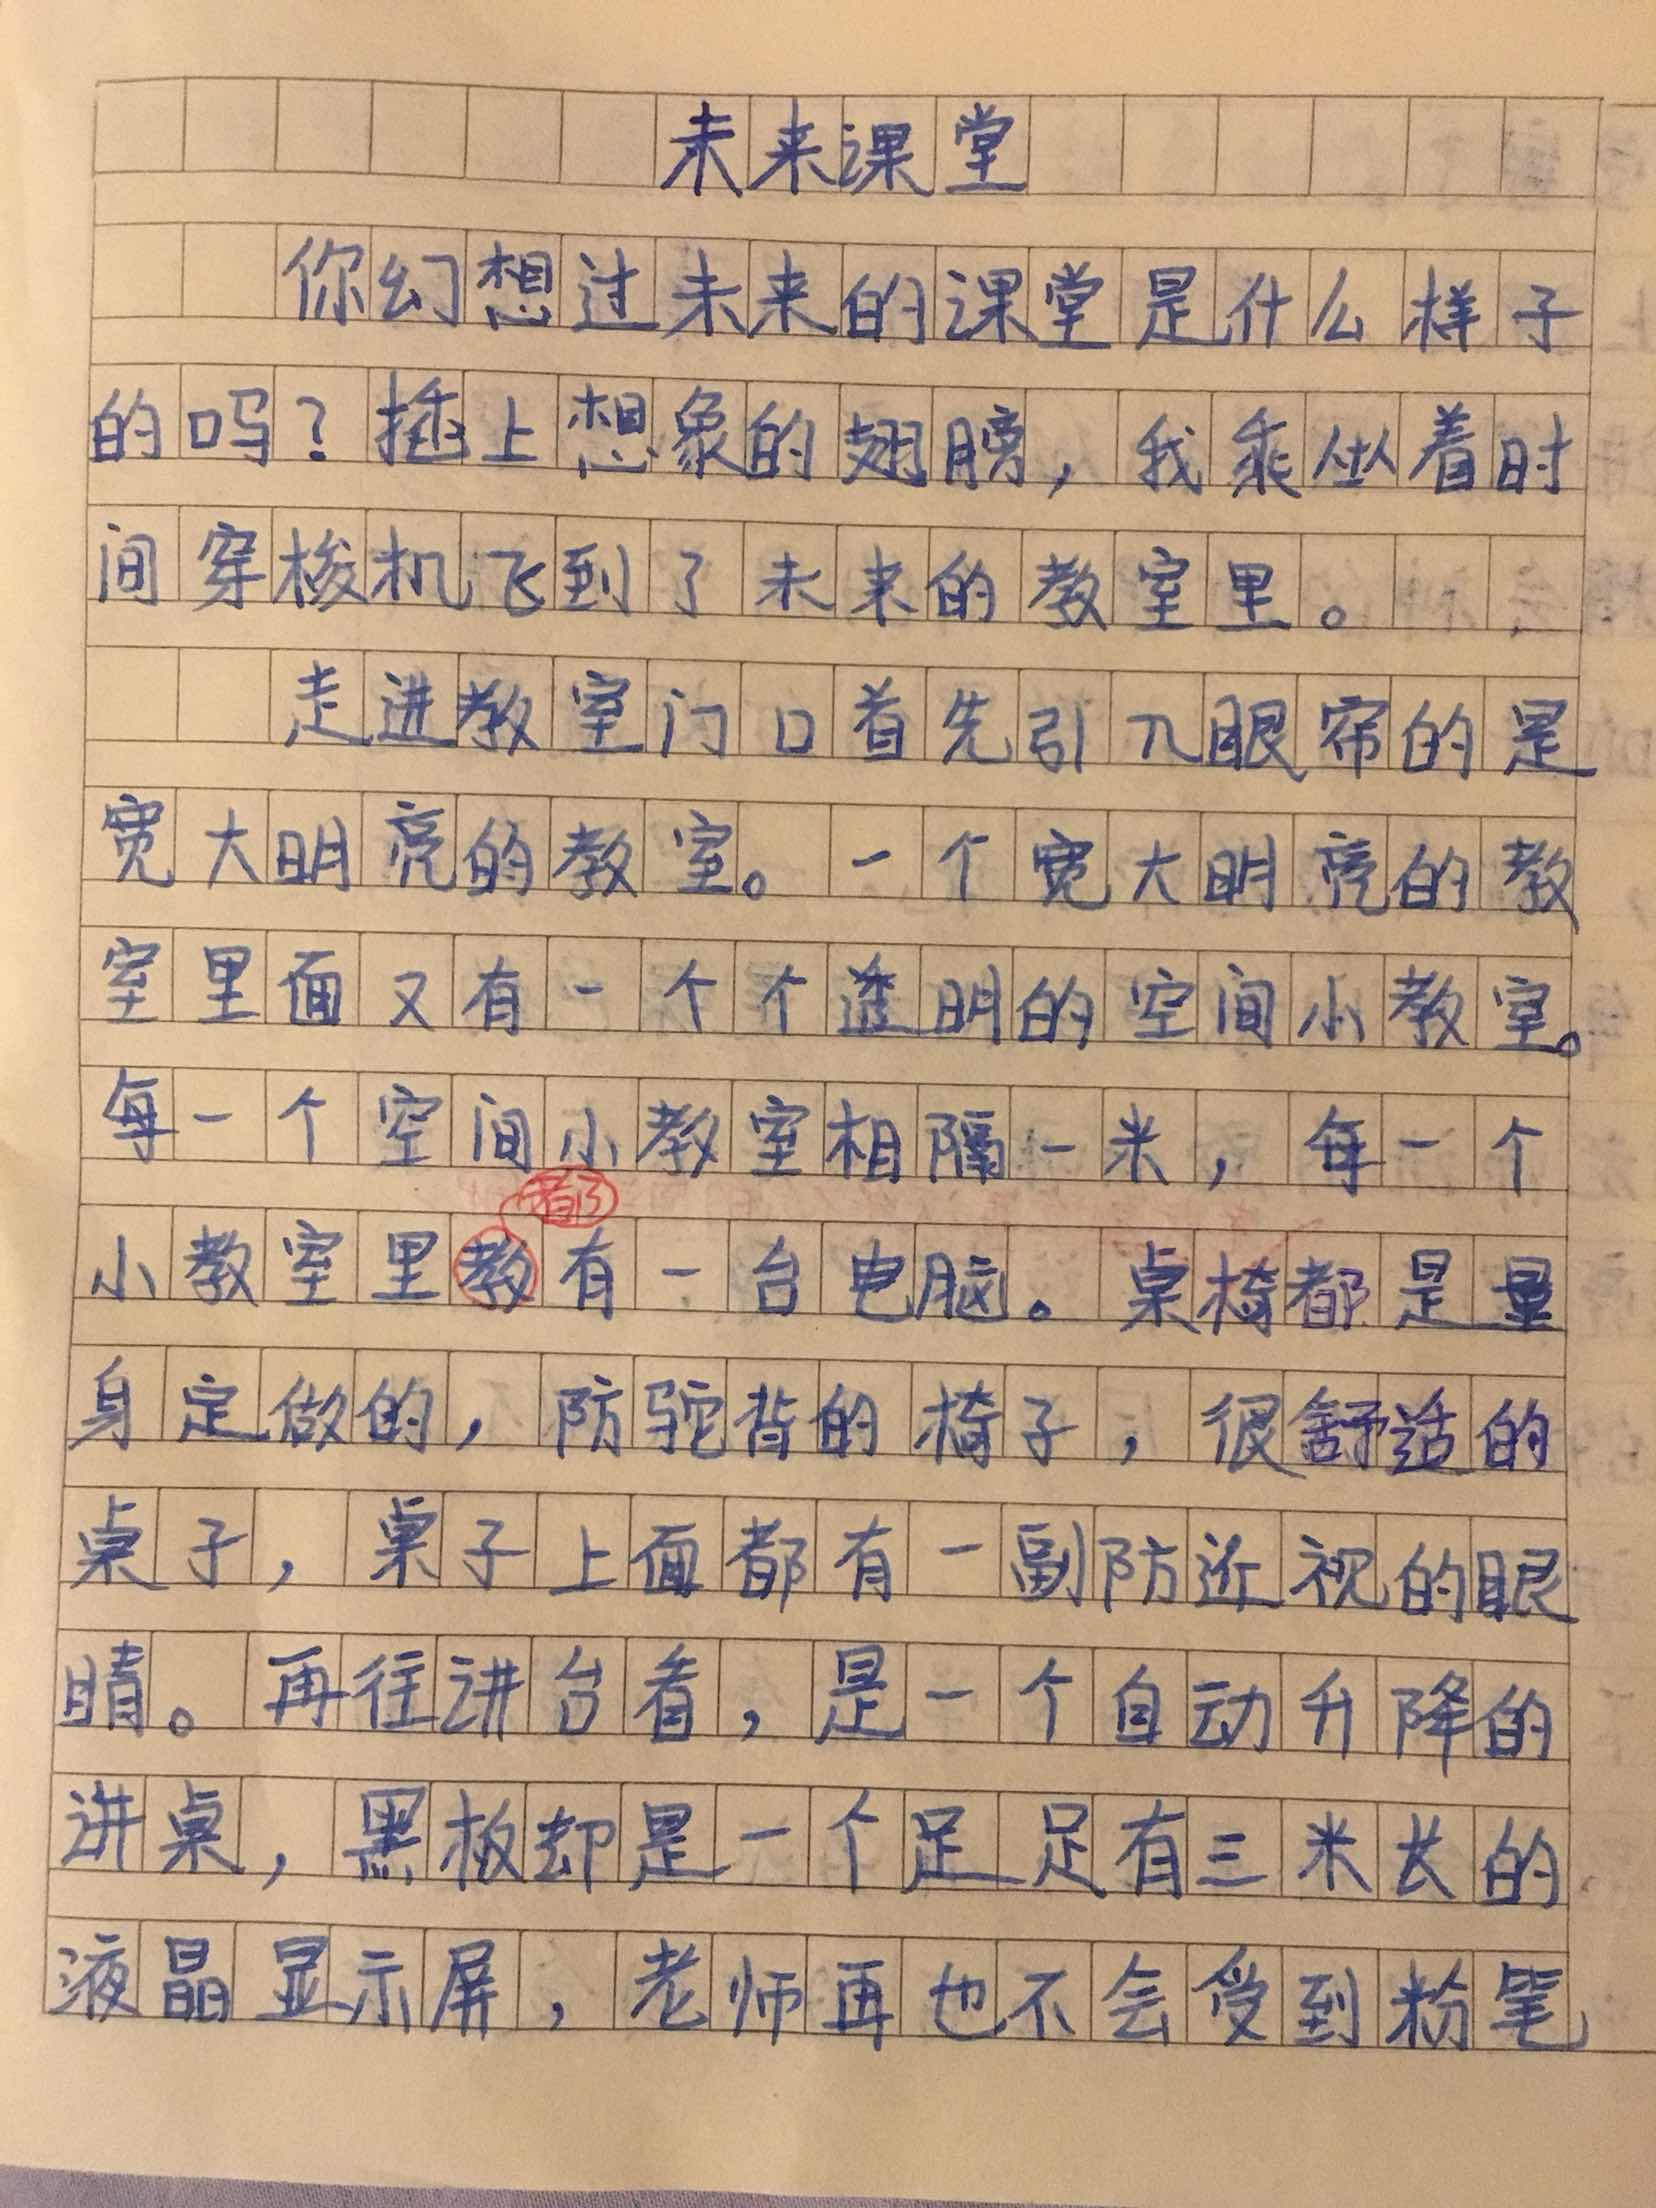 未来课堂
你幻想过未来的课堂是什么样子
的吗?插上想象的翅膀,我乘坐着时
间穿梭机飞到了未来的教室里。
走进教室门口首先引入眼帘的是
宽大明亮的教室。一个宽大明亮的教
室里面又有一个个透明的空间小教室。
每一个空间小教室相隔一米,每一个
都
小教室里教有一台电脑。桌椅都是量
身定做的,防驼背的椅子,很舒适的
桌子,桌子上面都有一副防近视的眼
睛。再往讲台看,是一个自动升降的
讲桌,黑板却是一个足足有三米长的
液晶显示屏,老师再也不会受到粉笔